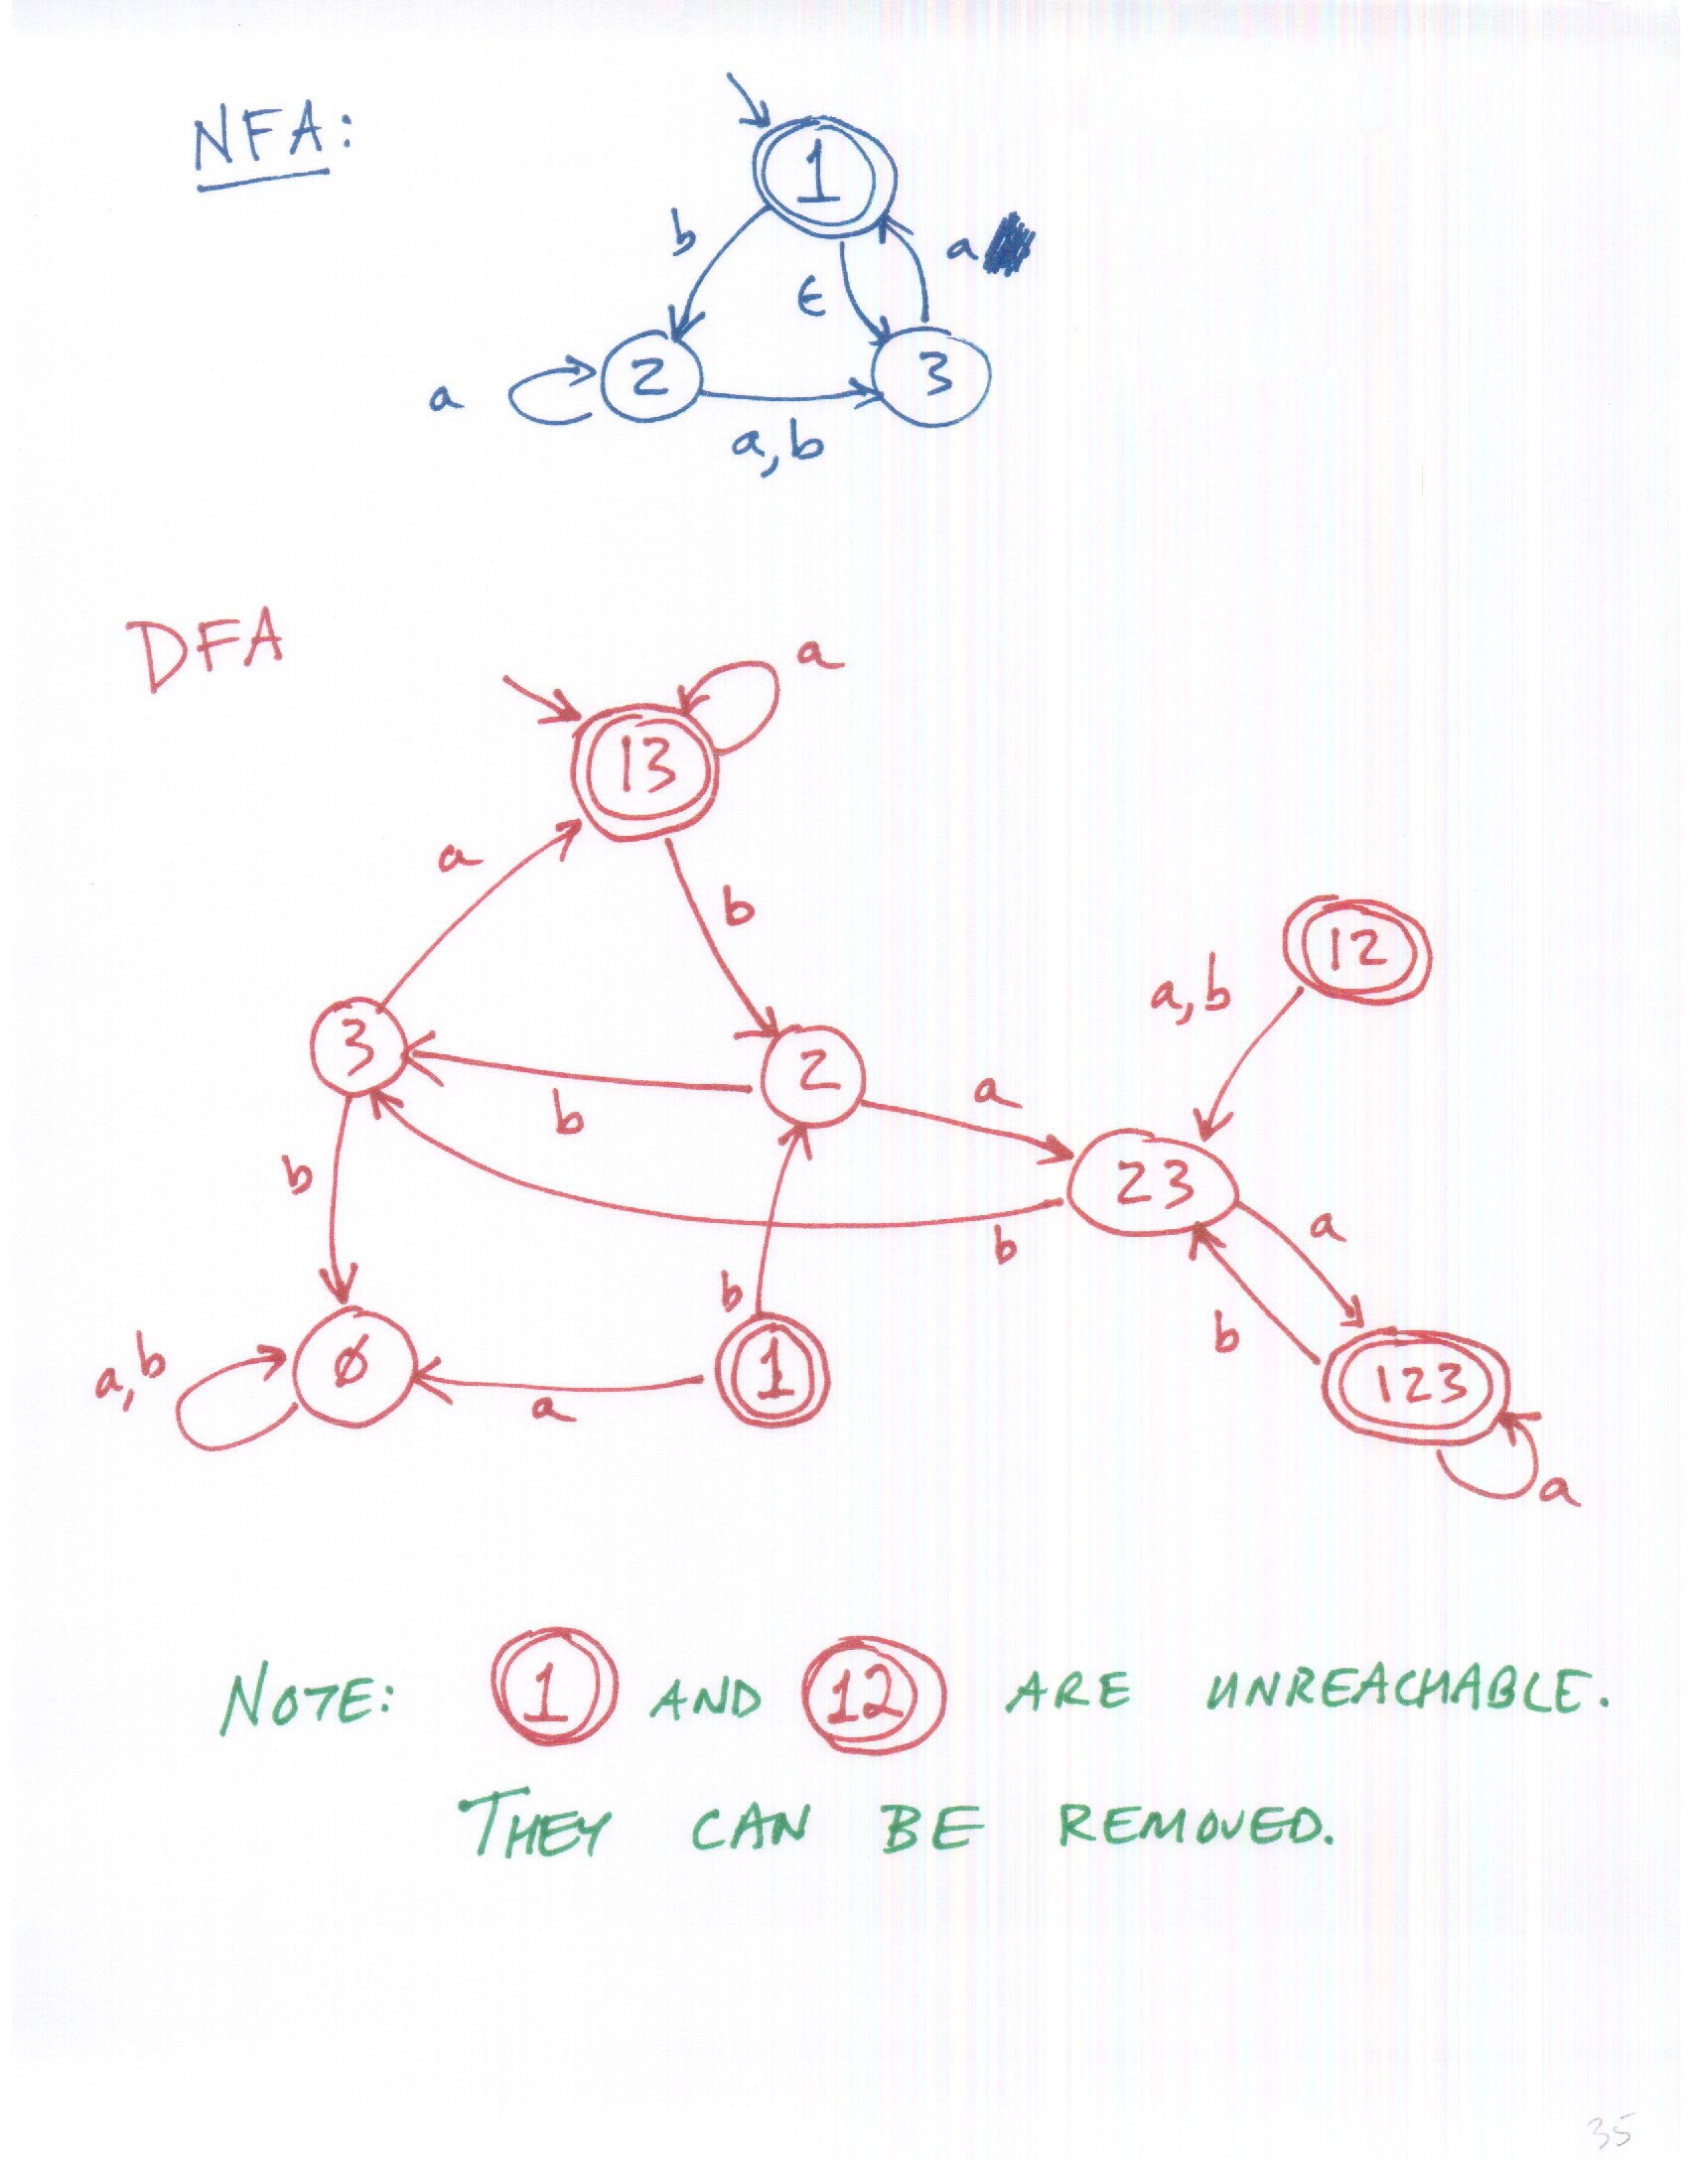 NFA:
1
b
a
ϵ
a
2
3
a,b
DFA
a
13
a
b
12
a,b
3
2
b
a
23
b
b
a
b
b
a,b
∅
a
1
123
a
NOTE: 1 AND 12 ARE UNREACHABLE.
THEY CAN BE REMOVED.
35